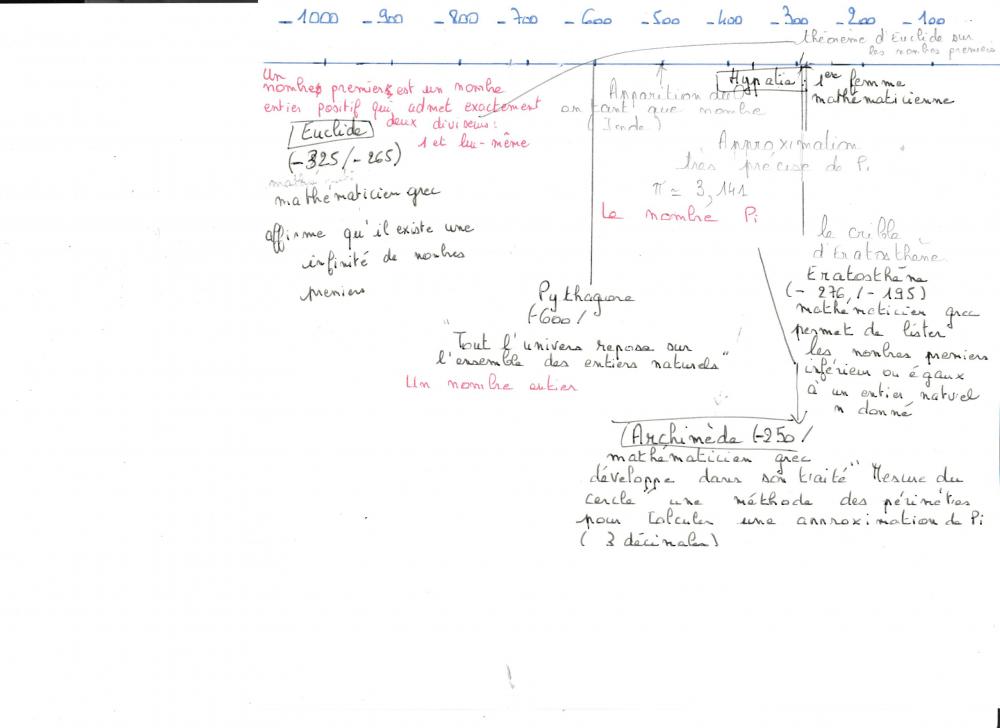 -1000 -900 -800 -700 -600 -500 -400 -300 -200 -100
théorème d'Euclide sur
les nombres premiers
Un
nombres premiers est un nombre
entier positif qui admet exactement
deux diviseurs :
1 et lui-même
Euclide
(-325/-265)
mathématicien grec
affirme qu'il existe une
infinité de nombres
premiers
Apparition du 0
en tant que nombre
(Inde)
Hypatia : 1ère femme
mathématicienne
Approximation
très précise de Pi
π ≃ 3,141
Le nombre Pi
Pythagore
(-600/
"Tout l'univers repose sur
l'ensemble des entiers naturels"
Un nombre entier
le crible
d'Eratosthène
Eratosthène
(-276,/-195)
mathématicien grec
permet de lister
les nombres premiers
inférieur ou égaux
à un entier naturel
n donné
Archimède (-250/
mathématicien grec
développe dans son traité "Mesure du
cercle" une méthode des périmètres
pour calculer une approximation de Pi
(3 décimales)